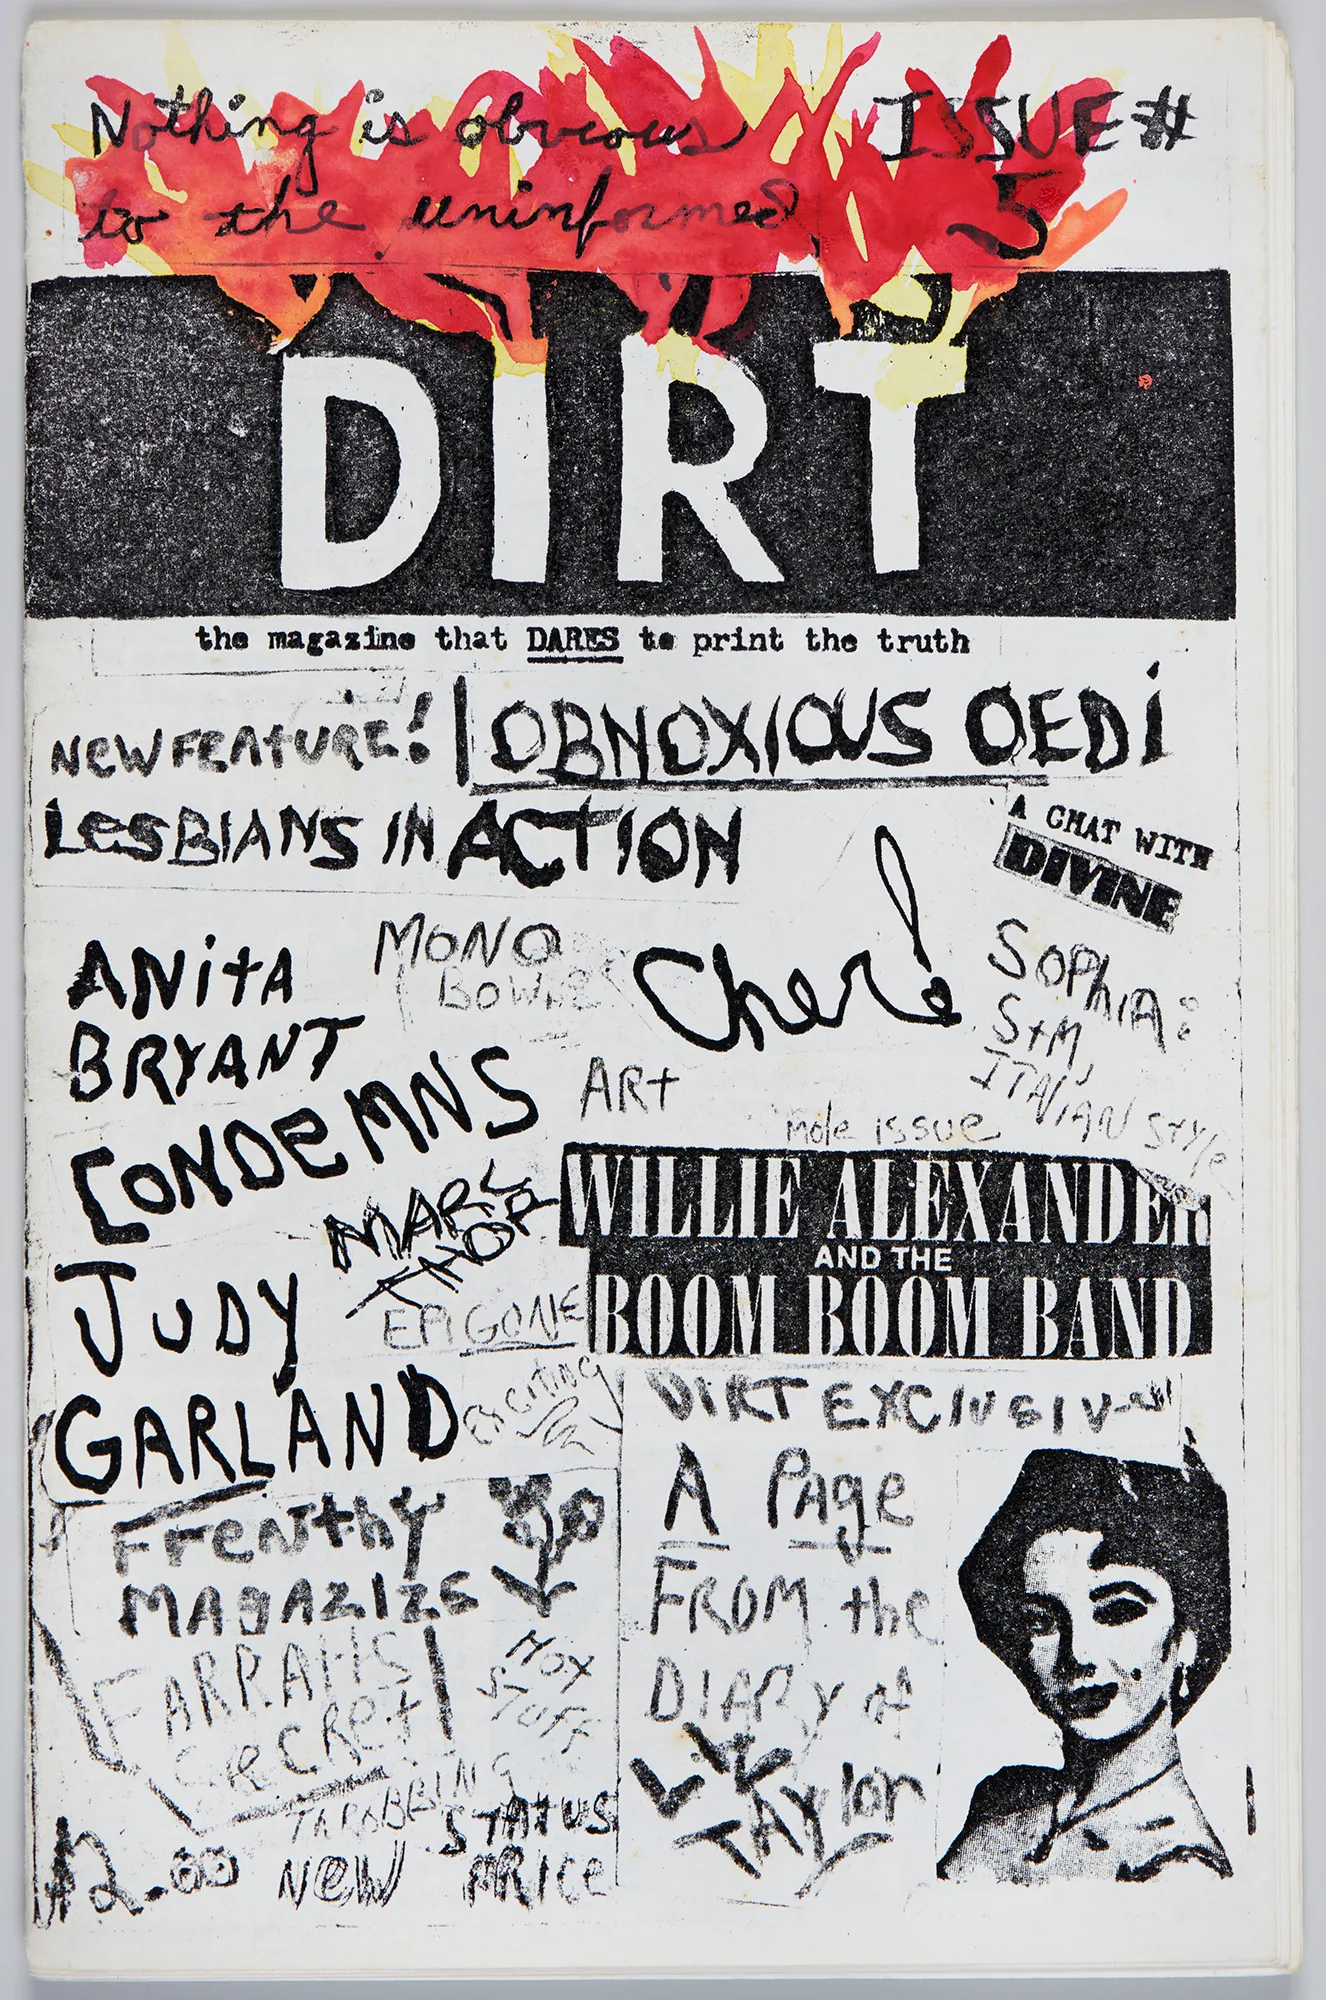 Nothing is obvious
to the uninformed
ISSUE #
5
DIRT
the magazine that DARES to print the truth
NEW FEATURE!
OBNOXIOUS OEDI
LESBIANS IN ACTION
A CHAT WITH
DIVINE
ANITA
BRYANT
CONDEMNS
JUDY
GARLAND
MONO
Cher!
SOPHIA:
S+M,
ITALIAN STYLE
ART
mole issue
MARK
THOR
EPIGONE
EXCITING
WILLIE ALEXANDER
AND THE
BOOM BOOM BAND
FFENTHY
MAGAZIZE
FARRAHS
SECRET
HOT
STUFF
THROBBING
$2.00
NEW
STATUS
PRICE
DIRT EXCLUSIVE
A Page
FROM the
DIARY of
LIZ
TAYlor